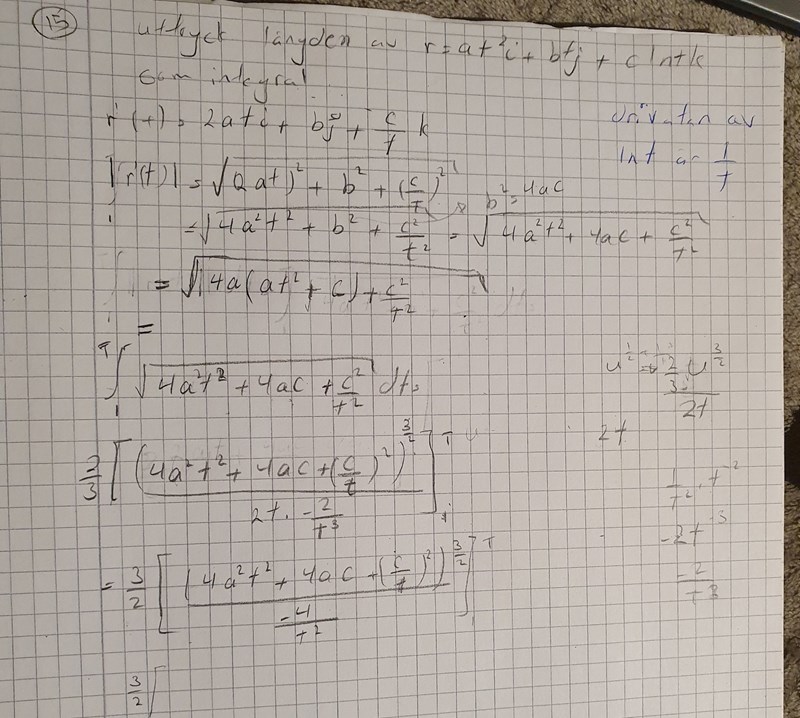 15) uttryck längden av r = at²i + btj + c lntk
som integral.
r'(t) = 2ati + bj + c/t k
Drivatan av
lnt är 1/t
|r'(t)| = √((2at)² + b² + (c/t)²)
b² = 4ac
= √(4a²t² + b² + c²/t²) = √(4a²t² + 4ac + c²/t²)
= √(4a(at² + c) + c²/t²)
=
∫₁ᵀ √(4a²t² + 4ac + c²/t²) dt =
2/3 u^(3/2)
2t
2t
2/3 [(4a²t² + 4ac + (c/t)²)^(3/2) / (2t · -2/t³)]₁ᵀ
1/t² · t⁻²
-2t⁻³
-2/t³
= 3/2 [(4a²t² + 4ac + (c/t)²)^(3/2) / (-4/t²)]ᵀ
3/2 [